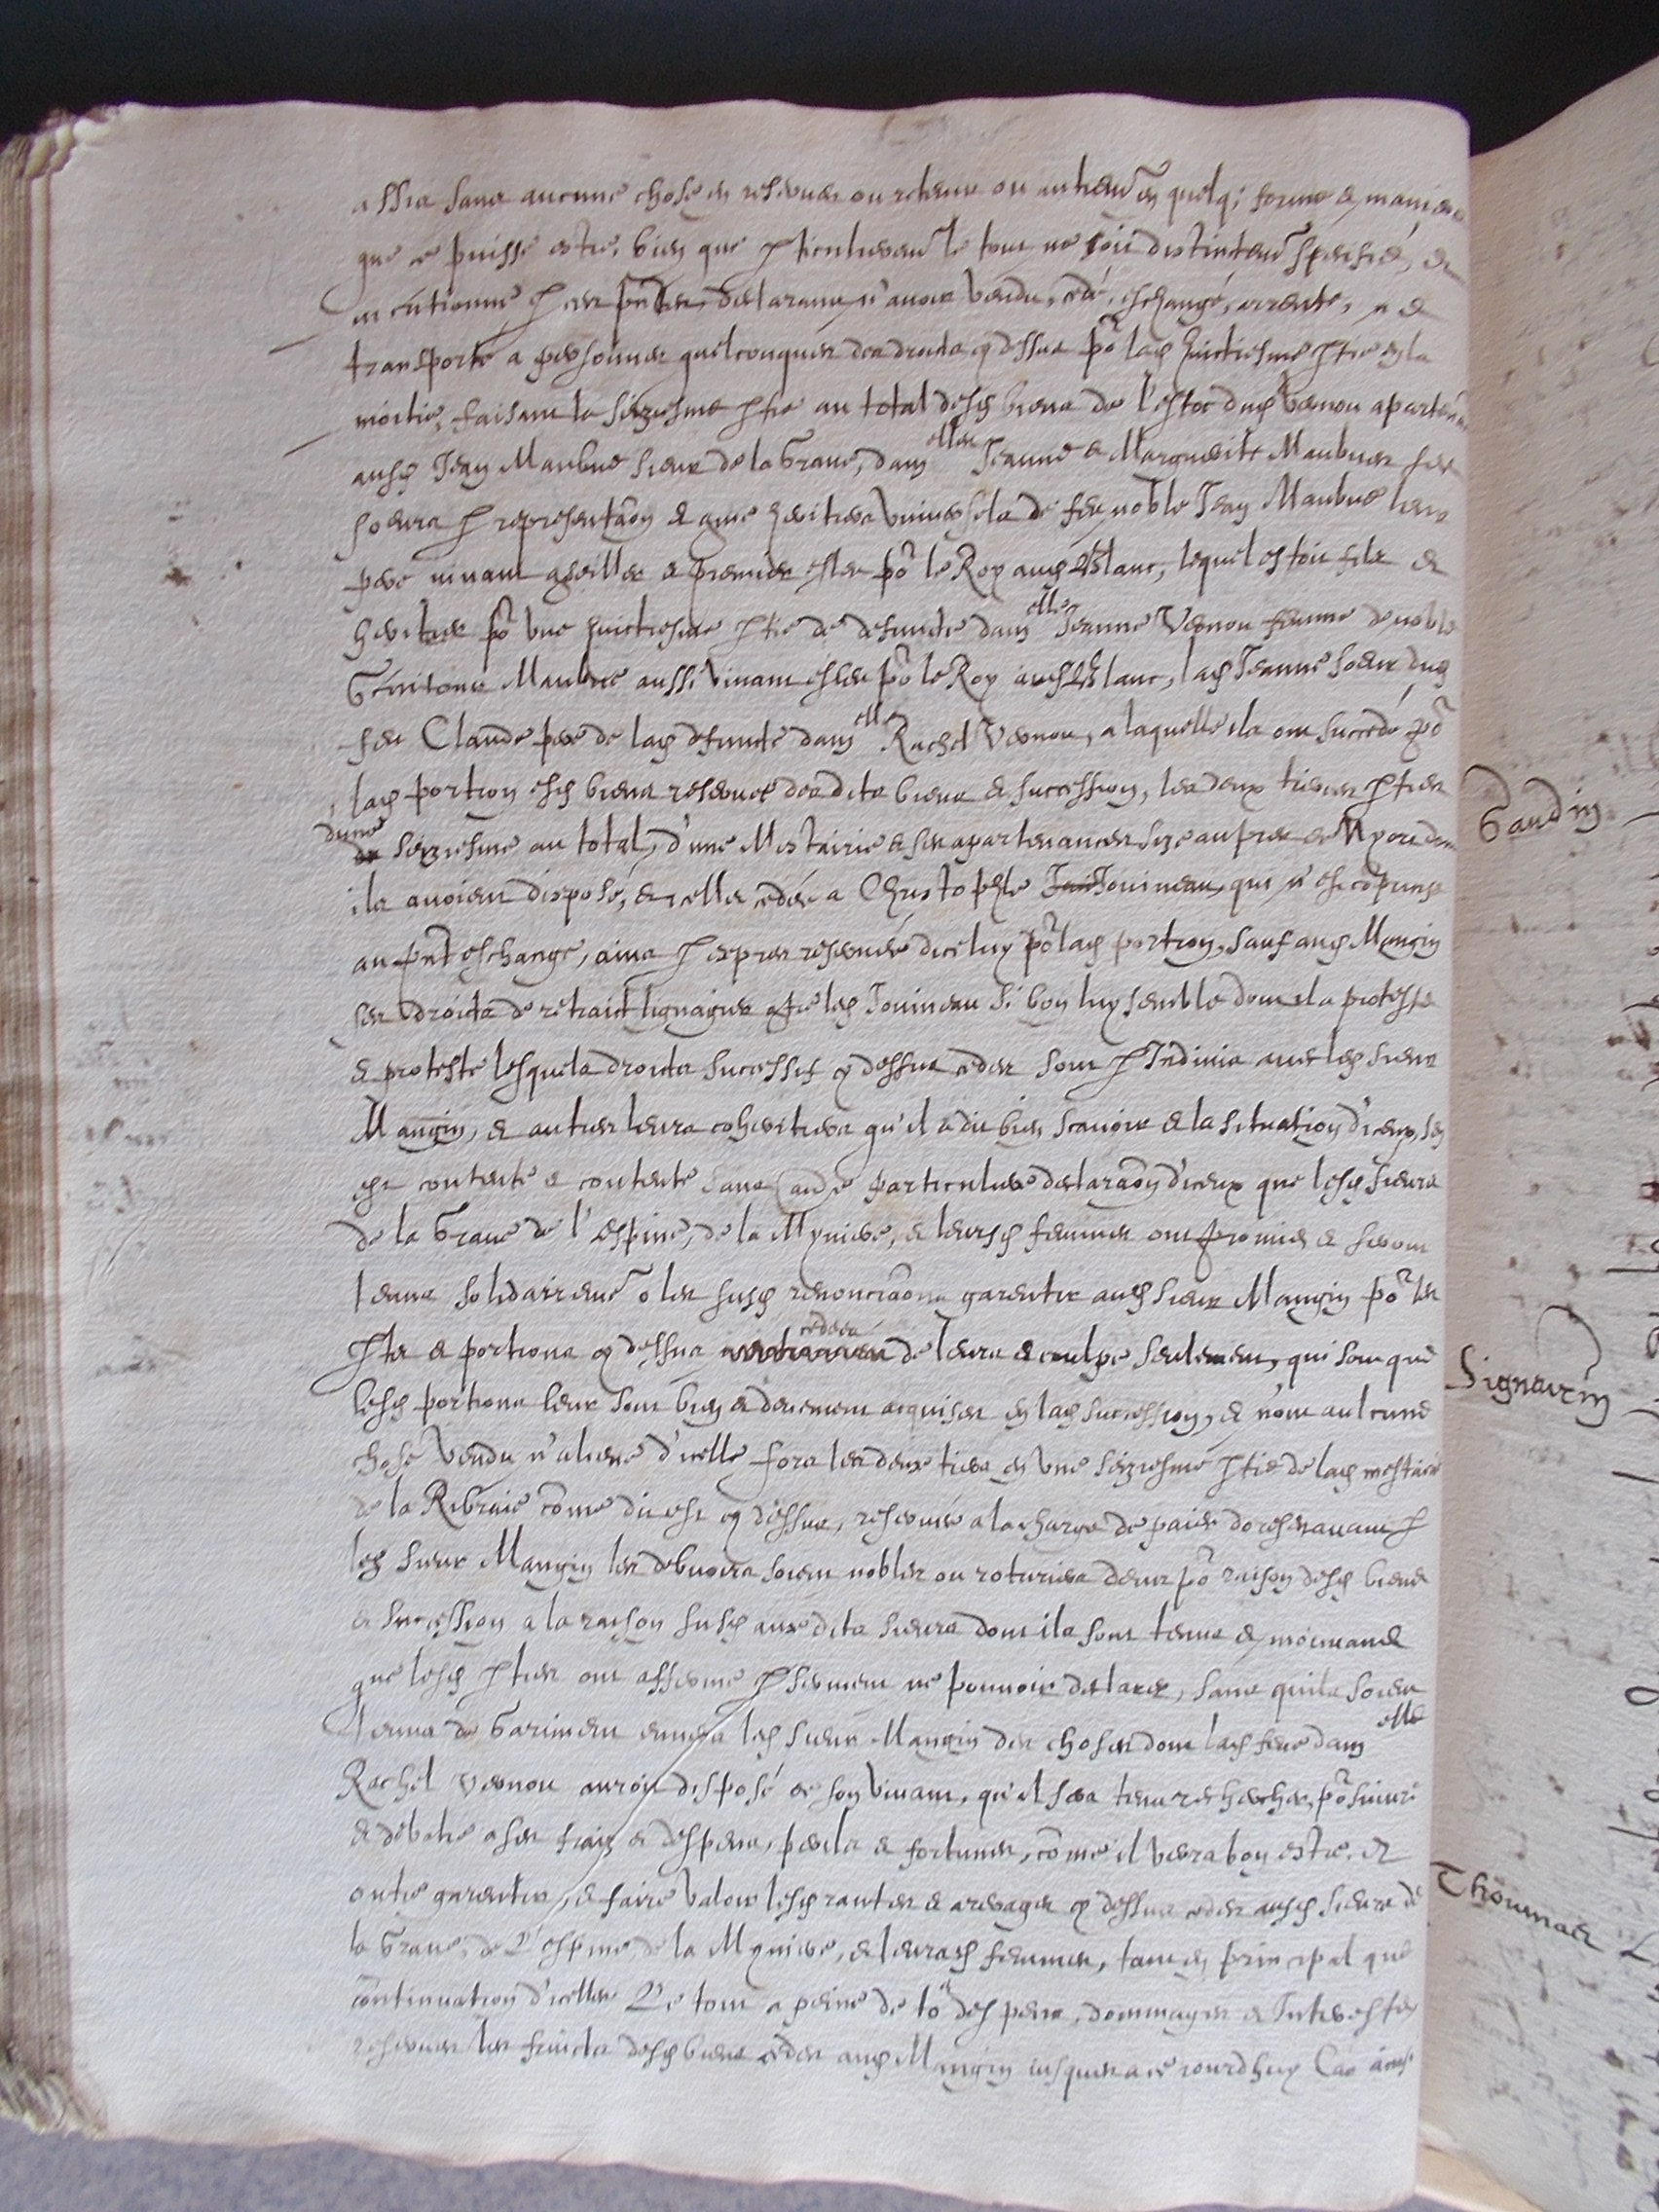 assis sans aucune chose en reserver ou retenir ou autremt en quelq; forme & maniere
que ce puisse estre, bien que pticulieremt le tout ne soit distinctemt speciffié, &
mentionné p ces pntes, declarans n'avoir vendu, cedé, eschangé, arrenté, n &
transporté a personnes quelconques des droits cy dessus po lad huictiesme ptie en la
moitié, faisant la seziesme ptie au total desd biens de l'estoc dud Vernou aparten
ausd Jean Maubue sieur de la Grave, dam elles Jeanne & Marguerite Maubues ses
soeurs p representaon & come heritiers universels de feu noble Jean Maubue leur
pere vivant conseiller & premier esleu po le Roy aud Blanc, lequel estoit filz &
heritier po une huictiesme ptie de defuncte dam elle Jeanne Vernou femme de noble
Maubue aussi vivant esleu po le Roy aud Blanc, lad Jeanne soeur dud
feu Claude pere de lad defuncte dam elle Rachel Vernou, a laquelle ils ont succedé po
lad portion esd biens reservé desdits biens & succession, les deux tierces pties
d'une seziesme au total, d'une Mestairie & ses apartenances size aupres de
ils avoient disposé, & icelles cedées a Christophle Jouineau, qui n'est comprinse
au pnt eschange, ains p expres reservée diceluy po lad portion, sauf aud Mangin
ses droicts de retraict lignager contre led Jouineau si bon luy semble dont il a protesté
& proteste lesquels droicts successifs cy dessus cedes sont p Indivis avec led sieur
Mangin, & autres leurs coheritiers qu'il a dit bien scavoir & la situation d'iceux, s'en
est contenté & contente sans particuliere declaraon d'iceux que lesd sieurs
de la Grave de l'Espine, de la Myniere, & leursd femmes ont promis & seront
tenus solidairemt o les susd renonciaons garentir aud sieur Mangin po les
pts & portions cy dessus cedees de leurs & coulpe seulement, qui sont que
lesd portions leur sont bien & deuement acquises en lad succession, & n'ont aulcune
chose vendu n'aliené d'icelle fors les deux tiers en une seziesme ptie de lad mestairie
de la Ribraie come dit est cy dessus, reservée a la charge de paier doresnavant p
led sieur Mangin les debvoirs soient nobles ou roturiers deus po raison desd biens
& succession a la raison susd aux dits sieurs dont ils sont tenus & mouvans
que lesd pties ont affermé p serment ne pouvoir declarer, sans quils soient
tenus de Gariment envers led sieur Mangin des choses dont lad feue dam elle
Rachel Vernou auroit disposé de son vivant, qu'il sera tenu rechercher, po suivre
& debatre a ses frais & despens, perils & fortunes, come il verra bon estre. Et
outre garentir, & faire valoir lesd rantes & arerages cy dessus cedes ausd sieurs de
la Grave, de L'espine, de la Myniere, & leursd femmes, tant en principal que
continuation d'icelles Le tout a peine de to despens, dommages & Interests
reserver les fruicts desd biens cedes aud Mangin jusques a ce jourdhuy
Gaudin
Signauvin
Thoumaes